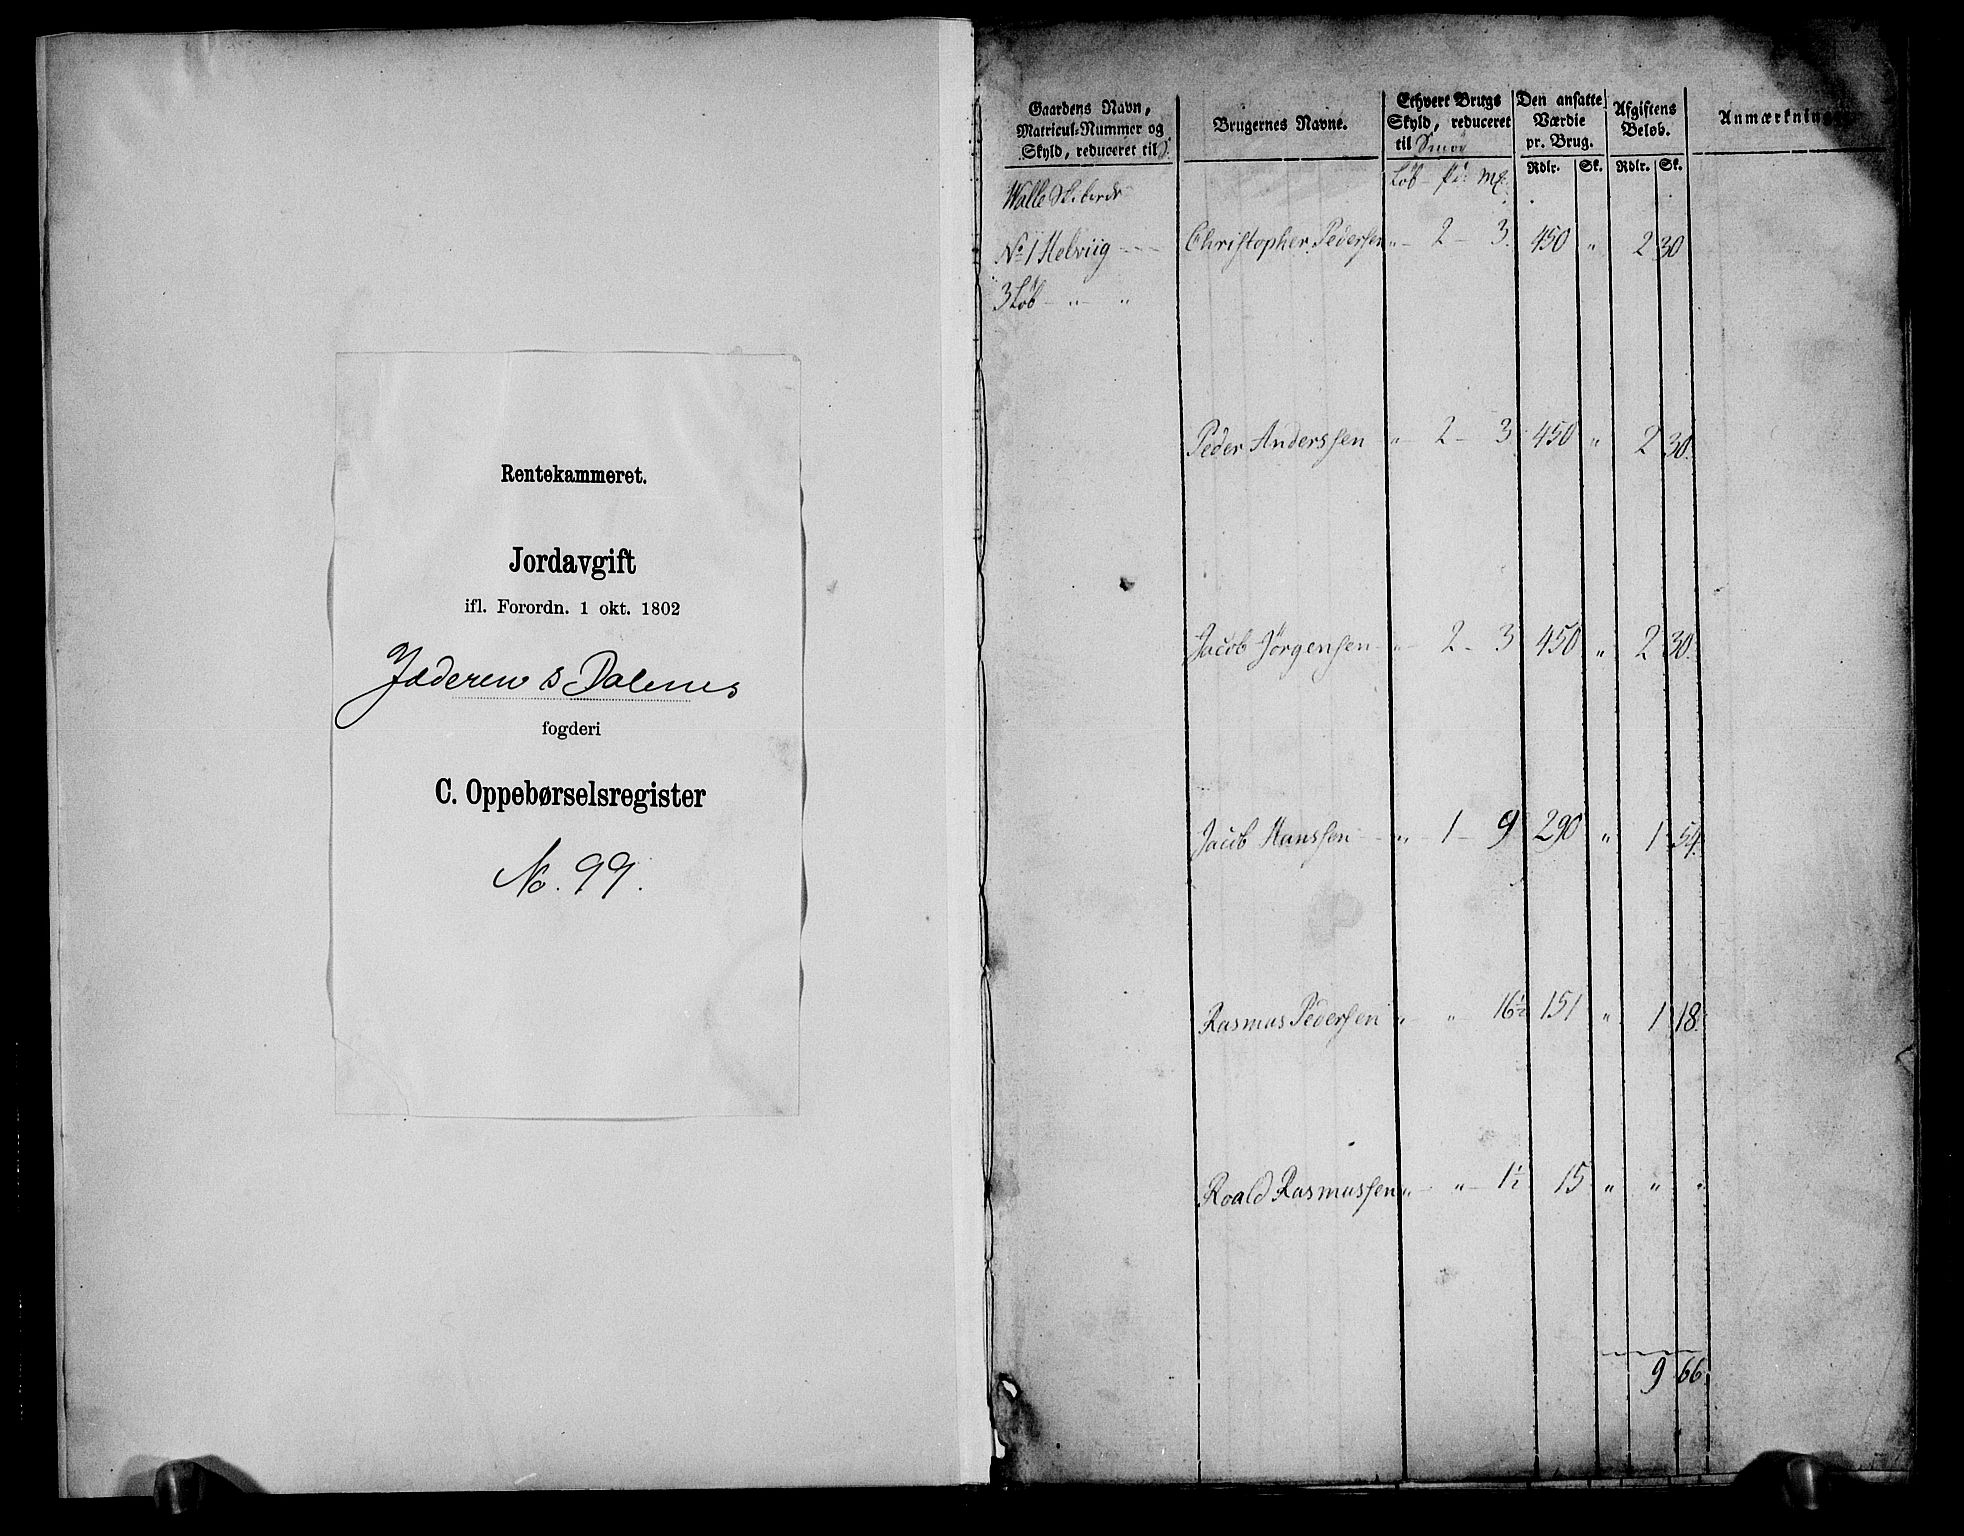 Rentekammeret.
Jordavgift
ifl. Forordn. 1 okt. 1802
Jæderen & Dalenes
fogderi
C. Oppebørselsregister
No. 99.
Gaardens Navn, Matricul-Nummer og Skyld, reduceret til S.
Brugernes Navne.
Ethvert Brugs Skyld, reduceret til Smör
Den ansatte Værdie pr. Brug.
Afgiftens Beløb.
Anmærkninger
Löb - pd: mk. Rdlr. Sk. Rdlr. Sk.
Walle Skibrede
No 1 Helviig - - - Christopher Pedersen „ - 2 - 3. 450 „ 2 30
3 Löb - „ - „
Peder Anderssen „ - 2 - 3 450 „ 2 30.
Jacob Jörgensen - „ - 2 - 3 450 „ 2 30.
Jacob Hanssen - „ - 1 - 9 290 „ 1 54.
Rasmus Pedersen „ - „ 16½ 151 „ 1 18.
Roald Rasmussen „ - „ - 1½ 15 „ „ „
9 66.